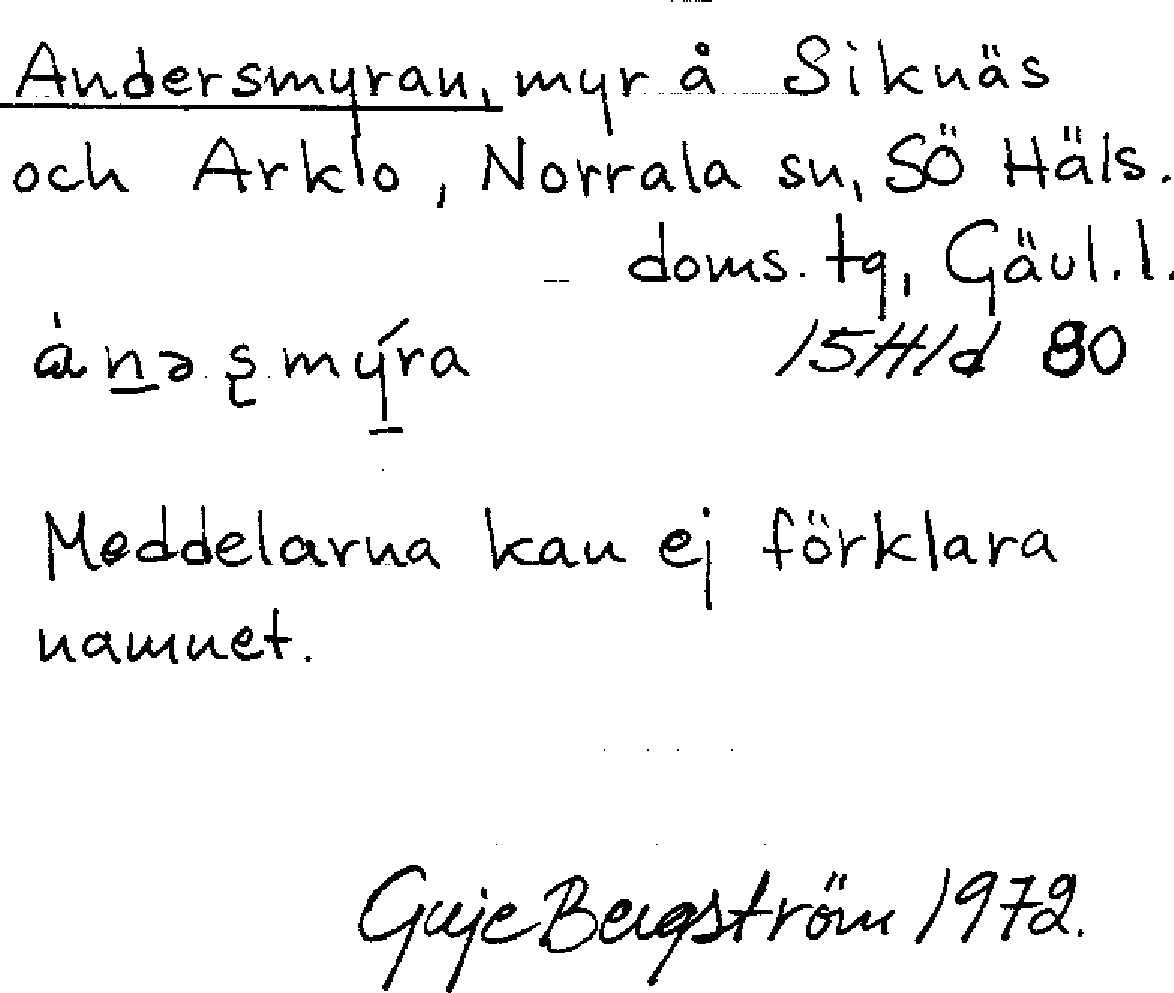 Andersmyran, myr å Siknäs
och Arklo, Norrala sn, SÖ Häls.
doms. tg, Gävl. l.
ánəʂmýra 15H1d 80
Meddelarna kan ej förklara
namnet.
Guje Bergström 1972.